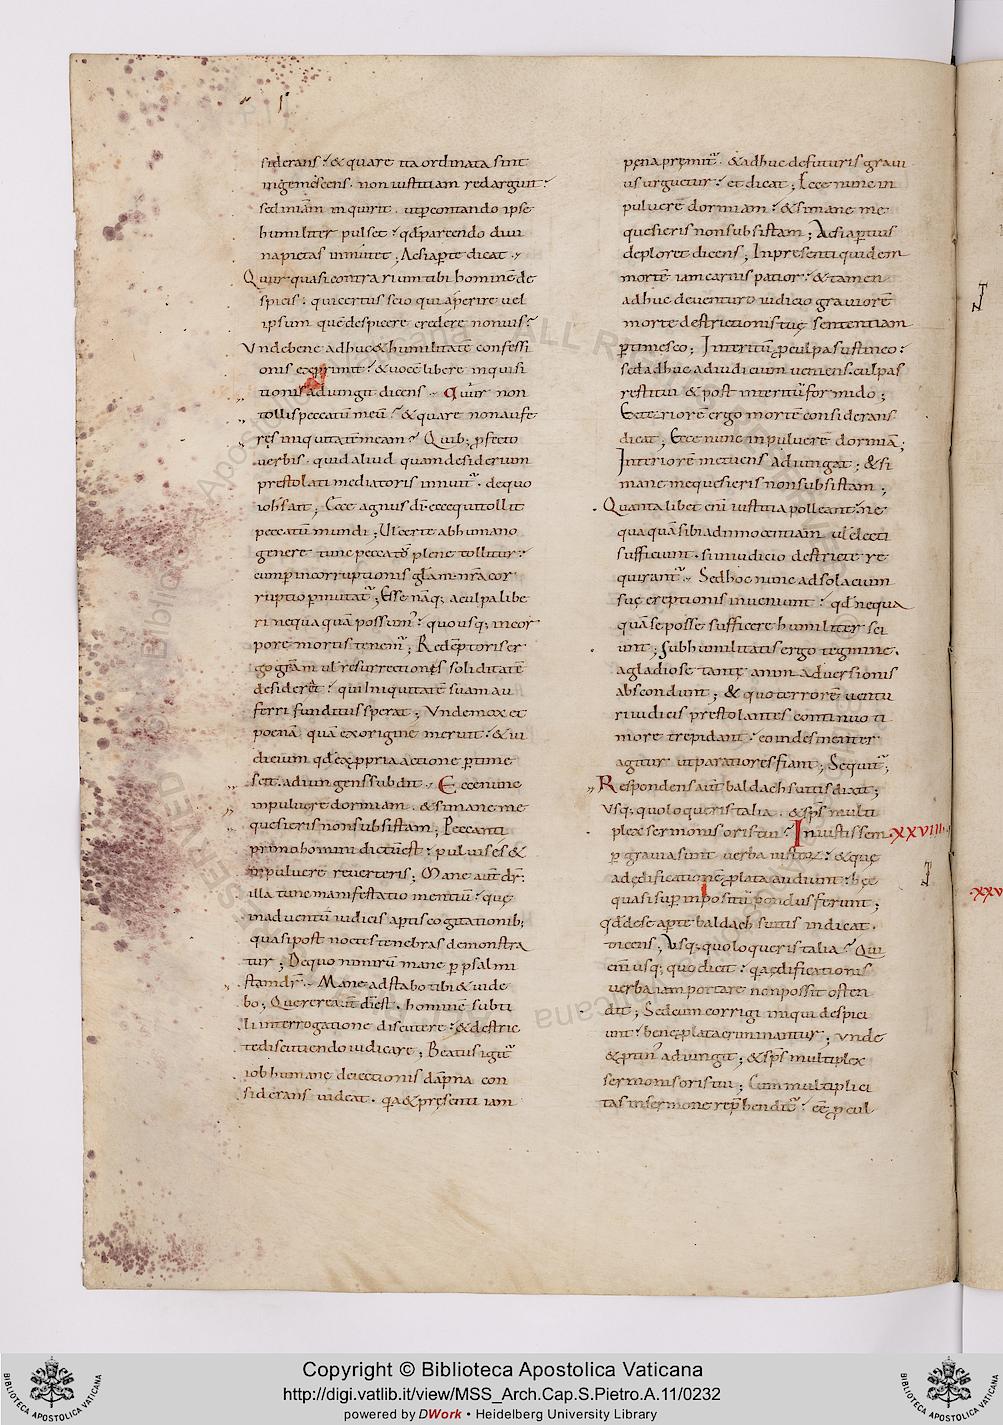 siderans? & quare ita ordinata sint
ingemescens. non iustitiam redarguit?
sed iniam inquirit. ut pcontando ipse
humiliter pulset? qd parcendo divi
na pietas innuit; Ac si apte dicat.
Quur quasi contrarium tibi hominē de
spicis? qui certus scio quia perire uel
ipsum quē despicere credere non uis?
Vnde bene adhuc & humilitatē confessi
onis exprimit? & uocē libere inquisi
tionis adiungit dicens. Quur non
tollis peccatū meū? & quare non aufe
res iniquitatē meam? Quib; pfecto
uerbis. quid aliud quam desiderium
prestolati mediatoris innuit. de quo
iohs ait; Ecce agnus dī. ecce qui tollit
peccatū mundi; Ul certe ab humano
genere tunc peccatū plene tollitur?
cum p incorruptionis glam nra cor
ruptio pmutat; Esse nāq; a culpa libe
ri nequaquā possum? quousq; in cor
pore mortis tenem; Redēptoris er
go grām ul resurrectionis soliditatē
desiderat? qui iniquitatē suam au
ferri funditus sperat; Vnde mox et
poenā quā ex origine meruit? & iu
dicium qd ex ppria actione ptime
scit. adiungens subdit. Ecce nunc
in puluere dormiam. & si mane me
quesieris non subsistam; Peccanti
primo homini dictū est? puluis es &
in puluere reuerteris; Mane aut dr.
illa tunc manifestatio mentiū? que
in aduentū iudicis aptis cogitationib;
quasi post noctis tenebras demonstra
tur; De quo nimirū mane p psalmi
stam dr. Mane adstabo tibi & uide
bo; Querere aut dī est. hominē subti
li interrogatione discutere? & destric
te discutiendo iudicare; Beatus igit
iob humane deiectionis dāpna con
siderans uideat. qa & presenti iam
pena premit. & adhuc de futuris graui
us urguetur? et dicat; Ecce nunc in
puluerē dormiam? & si mane me
quesieris non subsistam; Ac si aptius
deploret dicens; In presenti quidem
mortē iam carnis patior? & tamen
adhuc de uenturo iudicio grauiorē
morte destrictionis tue sententiam
ptimesco; Interitū p culpa sustineo?
sed adhuc ad iudicium ueniens. culpas
restitui & post interitū formido;
Exteriorē ergo mortē considerans
dicat; Ecce nunc in puluerē dormiā;
Interiorē metuens adiungat; & si
mane me quesieris non subsistam;
Quanta libet enī iustitia polleant? ne
quaquā sibi ad innocentiam ul electi
sufficiunt. si in iudicio destricte re
quirant. Sed hoc nunc ad solacium
sue ereptionis inueniunt? qd nequa
quā se posse sufficere humiliter sci
unt; Sub humilitatis ergo tegmine.
a gladio se tante animaduersionis
abscondunt; & quo terrorē uentu
ri iudicis prestolantes continuo ti
more trepidant? eo indesinenter
agitur ut paratiores fiant; Sequit;
Respondens aut baldach suitis dixit;
Vsq; quo loqueris talia. & sps multi
plex sermonis oris tui? Iniustis sem .XXVIII.
p grauia sunt uerba iustoz? & que
ad edificationē plata audiunt? hec
quasi sup inpositū pondus ferunt;
qd de se apte baldach suitis indicat.
dicens; Vsq; quo loqueris talia? Qui
enī usq; quo dicit? qa edificationis
uerba iam portare non possit osten
dit; Sed cum corrigi iniqui despici
unt? bene plata criminantur; vnde
& ptin adiungit; & sps multiplex
sermonis oris tui; Cum multiplici
tas in sermone rephendit? eē p cul
.XXV
Copyright © Biblioteca Apostolica Vaticana
http://digi.vatlib.it/view/MSS_Arch.Cap.S.Pietro.A.11/0232
powered by DWork • Heidelberg University Library
BIBLIOTECA APOSTOLICA VATICANA
BIBLIOTECA APOSTOLICA VATICANA